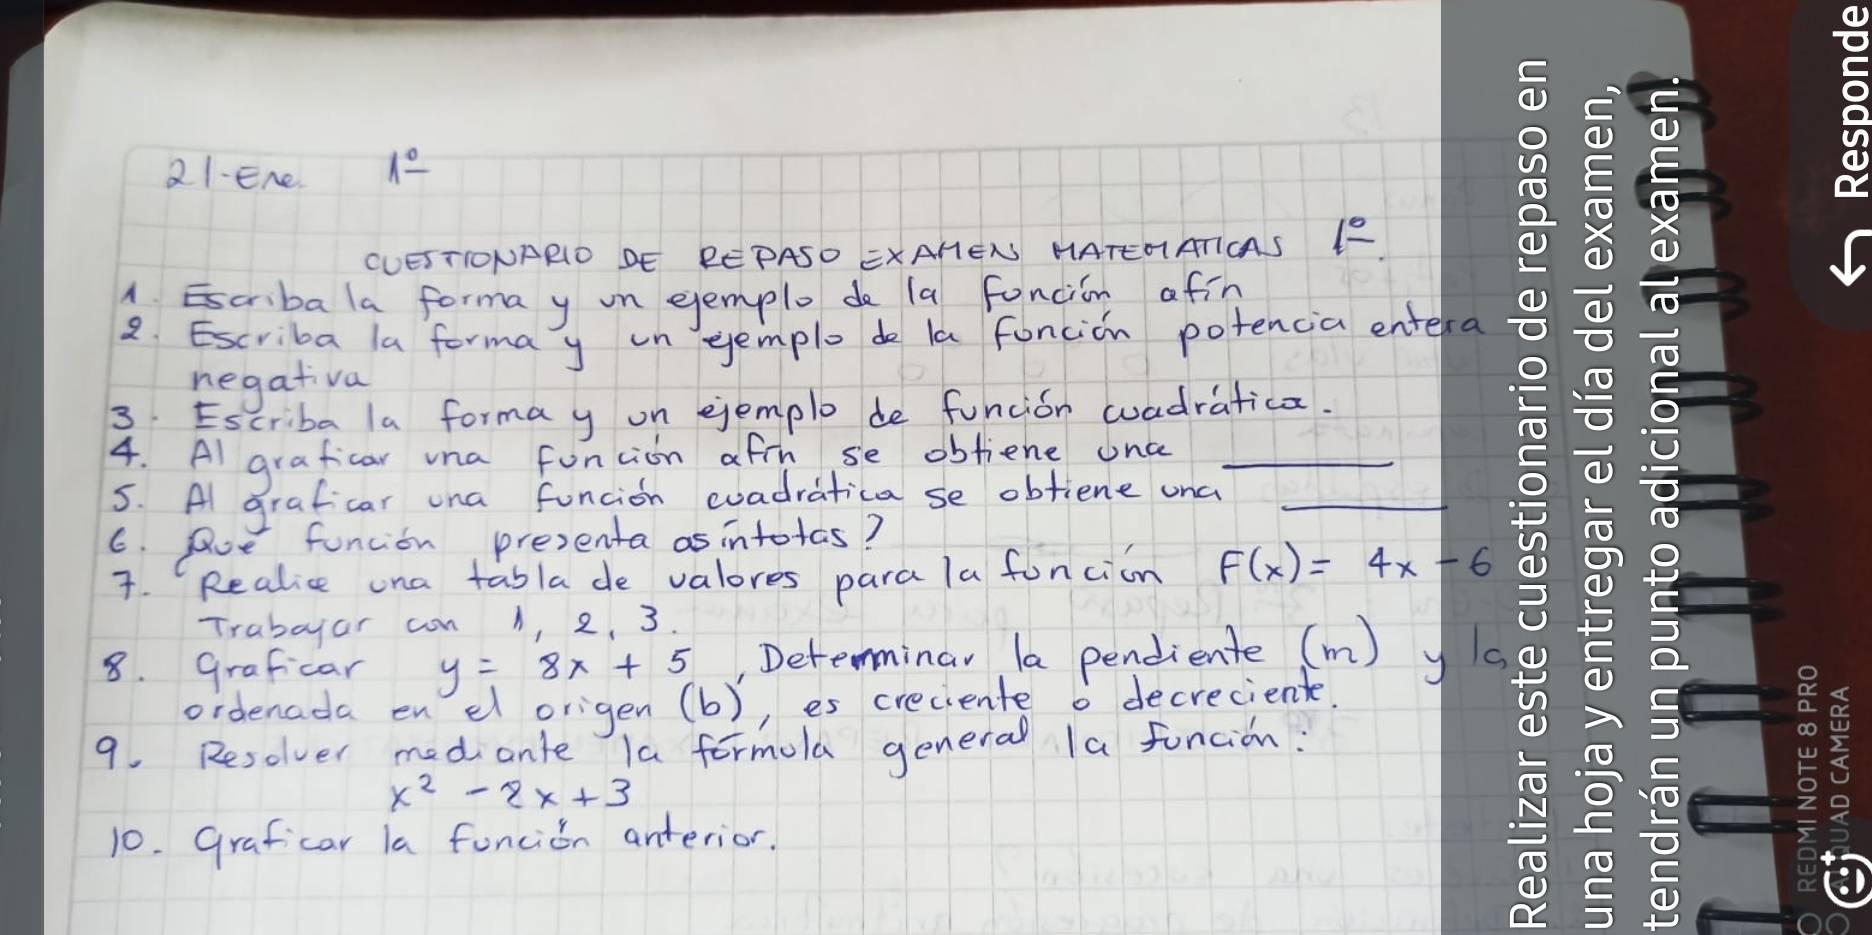 21-Ene. 1º
CUESTIONARIO DE REPASO EXAMEN MATEMATICAS 1º.
1. Escriba la forma y un ejemplo de la función afín
2. Escriba la forma y un ejemplo de la función potencia entera
negativa
3. Escriba la forma y un ejemplo de función cuadrática.
4. Al graficar una función afín se obtiene una ______
5. Al graficar una función cuadrática se obtiene una ______
6. ¿Qué función presenta asíntotas?
7. Realice una tabla de valores para la función F(x) = 4x - 6
Trabajar con 1, 2, 3.
8. Graficar y = 8x + 5, Determinar la pendiente (m) y la
ordenada en el origen (b), es creciente o decreciente.
9. Resolver mediante la fórmula general la función:
x² - 2x + 3
10. Graficar la función anterior.
Realizar este cuestionario de repaso en
una hoja y entregar el día del examen,
tendrán un punto adicional al examen.
REDMI NOTE 8 PRO
AI QUAD CAMERA
Responde